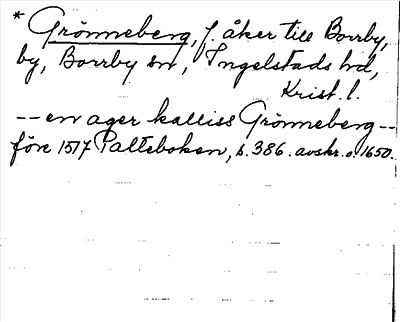 * Grönneberg, f. åker till Borrby,
by, Borrby sn, Ingelstads hd,
Krist. l.
-- en ager kalliss Grönneberg --
före 1517 Palteboken, s. 386. avskr. o. 1650.